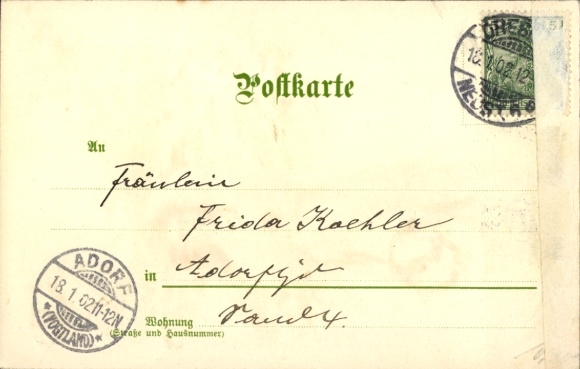 DRES
18.1.02.12
NEUST
Postkarte
An
Fräulein
Frida Koehler
in Adorf i/V
Wohnung
(Straße und Hausnummer)
ADORF
18.1.02 11-12N
*(VOGTLAND)*